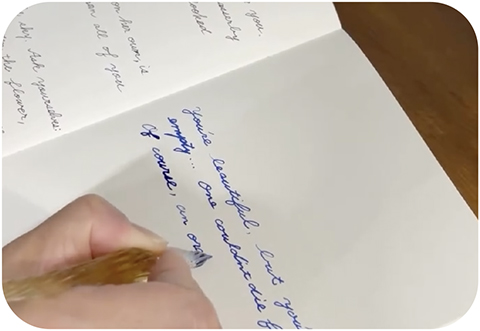 you,
on her own, is
all of you
sky. Ask yourselves:
the flower,
You're beautiful, but you'
empty... One couldn't die f
Of course, an ord